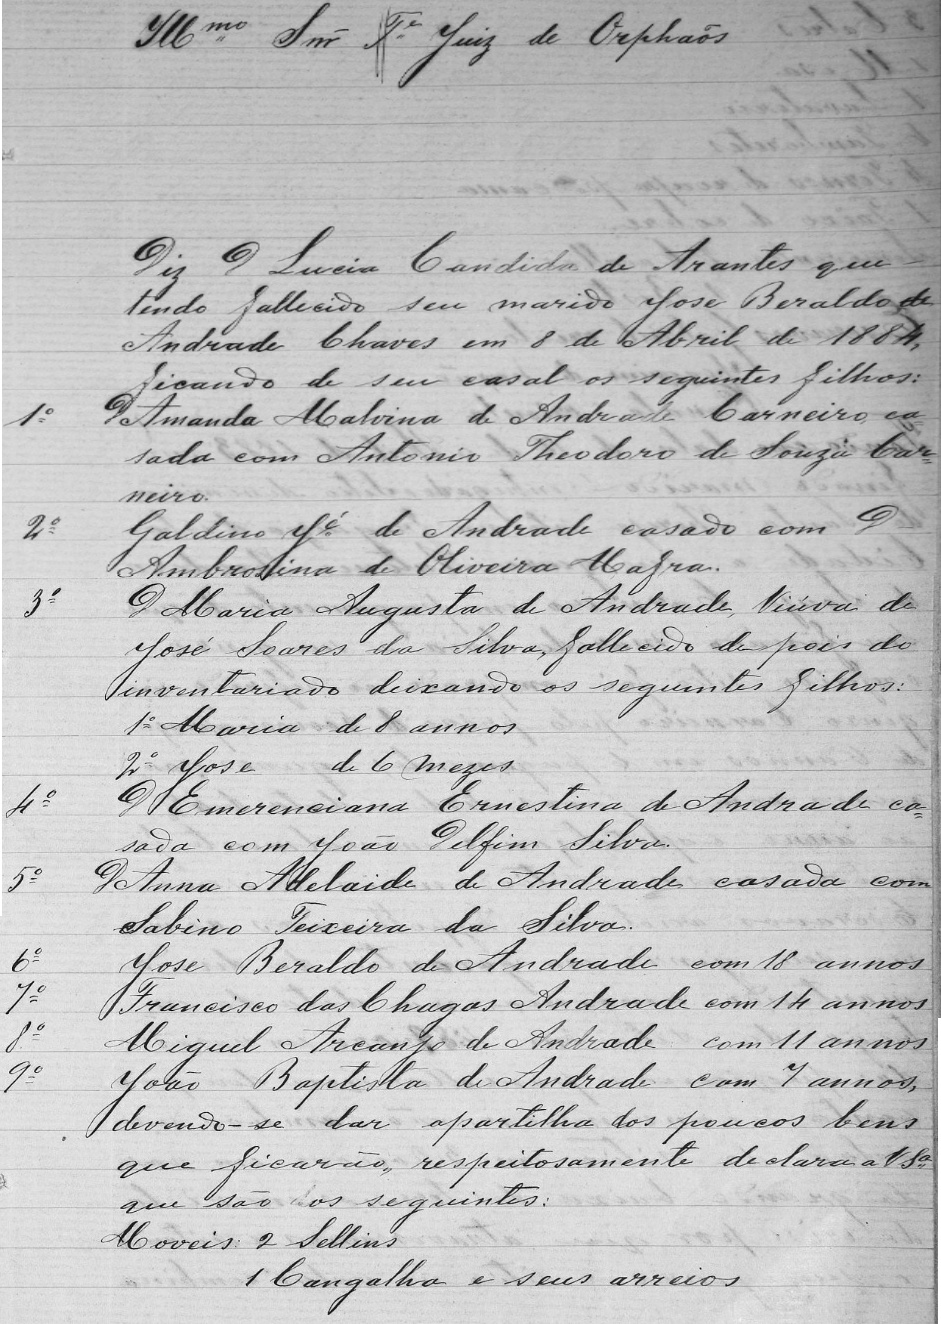 Illmo Snr Te Juiz de Orphaõs
Diz D Lucia Candida de Arantes que
tendo fallecido seu marido Jose Beraldo de
Andrade Chaves em 8 de Abril de 1884,
ficando de seu casal os seguintes filhos:
1º D Amanda Malvina de Andrade Carneiro, ca=
sada com Antonio Theodoro de Souza Car=
neiro.
2º Galdino Jé de Andrade casado com D
Ambrosina de Oliveira Mafra.
3º D Maria Augusta de Andrade, Viúva de
José Soares da Silva, fallecido de pois do
inventariado deixando os seguintes filhos:
1º Maria de 8 annos
2º Jose de 6 mezes
4º D Emerenciana Ernestina de Andrade ca=
sada com João Delfim Silva.
5º D Anna Adelaide de Andrade casada com
Sabino Teixeira da Silva.
6º Jose Beraldo de Andrade com 18 annos
7º Francisco das Chagas Andrade com 14 annos
8º Miguel Arcanjo de Andrade com 11 annos
9º João Baptista de Andrade com 7 annos,
devendo-se dar apartilha dos poucos bens
que ficarão, respeitosamente declara a V Sª
que são os seguintes:
Moveis: 2 Sellins
1 Cangalha e seus arreios